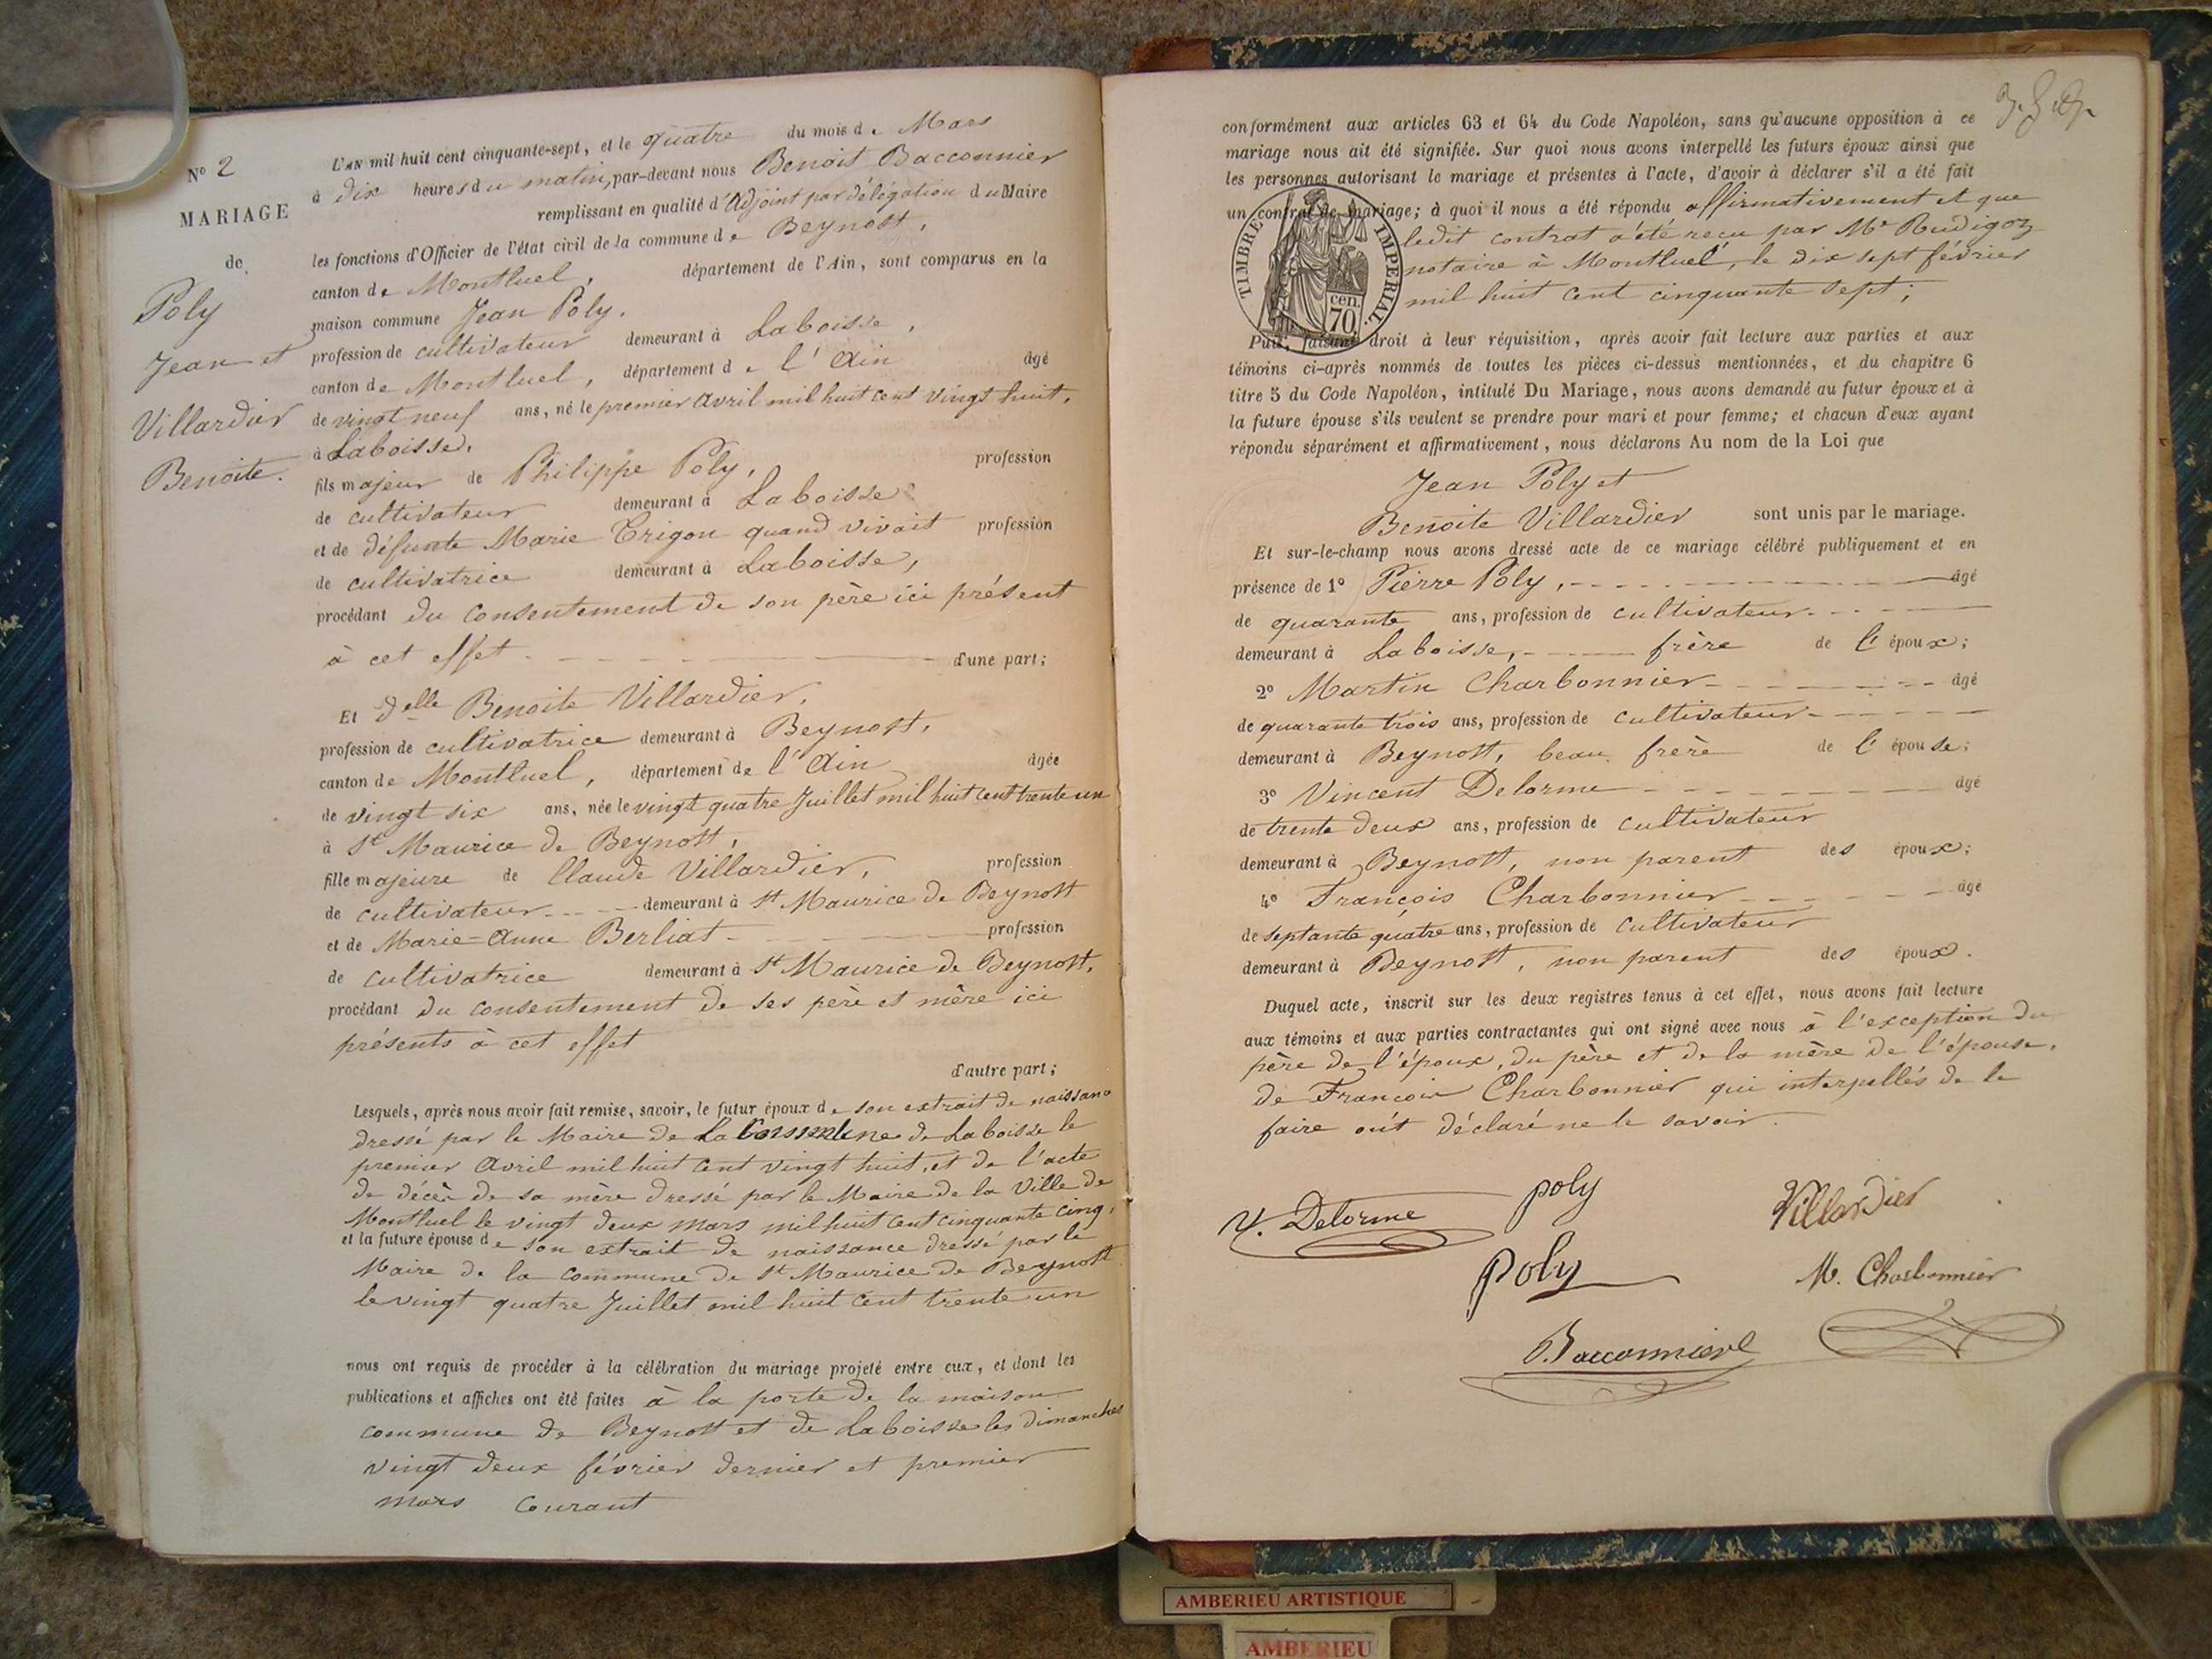 N° 2
MARIAGE
de
Poly
Jean et
Villardier
Benoite.
L'AN mil huit cent cinquante-sept, et le quatre du mois de Mars
à dix heures du matin, par-devant nous Benoit Bacconnier
remplissant en qualité d'Adjoint par délégation du Maire
les fonctions d'Officier de l'état civil de la commune de Beynost,
canton de Montluel, département de l'Ain, sont comparus en la
maison commune Jean Poly,
profession de cultivateur demeurant à Laboisse,
canton de Montluel, département de l'Ain âgé
de vingt neuf ans, né le premier avril mil huit cent vingt huit,
à Laboisse,
fils majeur de Philippe Poly, profession
de cultivateur demeurant à Laboisse
et de défunte Marie Trigon quand vivait profession
de cultivatrice demeurant à Laboisse,
procédant du consentement de son père ici présent
à cet effet - d'une part;
Et delle Benoite Villardier,
profession de cultivatrice demeurant à Beynost,
canton de Montluel, département de l'Ain âgée
de vingt six ans, née le vingt quatre Juillet mil huit cent trente un
à St Maurice de Beynost,
fille majeure de Claude Villardier, profession
de cultivateur demeurant à St Maurice de Beynost
et de Marie-Anne Berliat - profession
de cultivatrice demeurant à St Maurice de Beynost,
procédant du consentement de ses père et mère ici
présents à cet effet
d'autre part;
Lesquels, après nous avoir fait remise, savoir, le futur époux de son extrait de naissance
dressé par le Maire de la Commune de Laboisse le
premier avril mil huit cent vingt huit, et de l'acte
de décès de sa mère dressé par le Maire de la Ville de
Montluel le vingt deux mars mil huit cent cinquante cinq,
et la future épouse de son extrait de naissance dressé par le
Maire de la commune de St Maurice de Beynost
le vingt quatre Juillet mil huit cent trente un
nous ont requis de procéder à la célébration du mariage projeté entre eux, et dont les
publications et affiches ont été faites à la porte de la maison
commune de Beynost et de Laboisse les dimanches
vingt deux février dernier et premier
mars courant
conformément aux articles 63 et 64 du Code Napoléon, sans qu'aucune opposition à ce
mariage nous ait été signifiée. Sur quoi nous avons interpellé les futurs époux ainsi que
les personnes autorisant le mariage et présentes à l'acte, d'avoir à déclarer s'il a été fait
un contrat de mariage; à quoi il nous a été répondu affirmativement et que
ledit contrat a été reçu par Me Rudigoz
notaire à Montluel, le dix sept février
mil huit cent cinquante sept;
TIMBRE IMPÉRIAL.
cen.
70
Puis, faisant droit à leur réquisition, après avoir fait lecture aux parties et aux
témoins ci-après nommés de toutes les pièces ci-dessus mentionnées, et du chapitre 6
titre 5 du Code Napoléon, intitulé Du Mariage, nous avons demandé au futur époux et à
la future épouse s'ils veulent se prendre pour mari et pour femme; et chacun d'eux ayant
répondu séparément et affirmativement, nous déclarons Au nom de la Loi que
Jean Poly et
Benoite Villardier sont unis par le mariage.
Et sur-le-champ nous avons dressé acte de ce mariage célébré publiquement et en
présence de 1° Pierre Poly, - âgé
de quarante ans, profession de cultivateur -
demeurant à Laboisse, - frère de l'époux;
2° Martin Charbonnier - âgé
de quarante trois ans, profession de cultivateur -
demeurant à Beynost, beau frère de l'épouse;
3° Vincent Delorme - âgé
de trente deux ans, profession de cultivateur
demeurant à Beynost, non parent des époux;
4° François Charbonnier - âgé
de septante quatre ans, profession de cultivateur
demeurant à Beynost, non parent des époux.
Duquel acte, inscrit sur les deux registres tenus à cet effet, nous avons fait lecture
aux témoins et aux parties contractantes qui ont signé avec nous à l'exception du
père de l'époux, du père et de la mère de l'épouse,
de François Charbonnier qui interpellés de le
faire ont déclaré ne le savoir.
V. Delorme poly Villardier
Poly M. Charbonnier
B. Bacconnier
AMBERIEU ARTISTIQUE
AMBERIEU